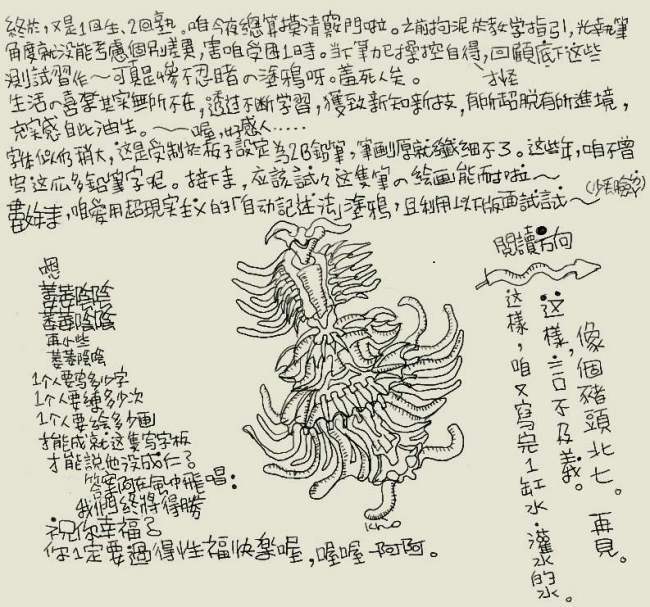 終於，又是1回生、2回熟。咱今夜總算摸清竅門啦。之前拘泥於教学指引，光執筆
角度就没能考慮個別差異，害咱受困1時。当下筆力己操控自得，回顧底下这些
測試習作～可真是慘不忍睹の塗鴉呀。羞死人矣。才怪
生活の喜樂其实無所不在，透过不断学習，獲致新知新技，有所超脱有所進境，
充实感自此油生。～～喔，好感人……
字体似仍稍大，这是受制於板子設定為2B鉛筆，筆劃厚就纖細不了。这些年，咱不曾
写这広多鉛筆字呢。接下来，应該試々这隻筆の绘画能耐啦～
素来，咱爱用超現实主义的「自动記述法」塗鴉，且利用以下版面試試～（少丢臉）
閱讀方向
嗯
萋萋陰陰
萋萋陰陰
再小些
萋萋陰陰
1个人要写多少字
1个人要練多少次
1个人要绘多少画
才能成就这隻写字板
才能説他没成仁？
答案阿在風中飛唱：
我們終將得勝
祝你幸福？
你1定要過得性福快樂喔，喔喔一阿阿。
这樣，咱又寫完1缸水．灌水的水。
这樣．言不及義。
像個豬頭北七。再見。